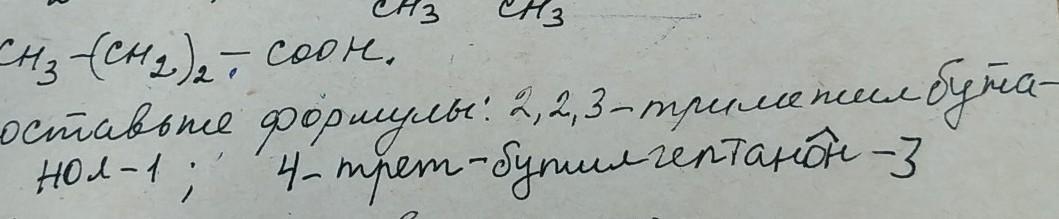 CH3 CH3
CH3-(CH2)2-COOH.
оставьте формулы: 2,2,3-триметилбута-
нол-1; 4-трет-бутилгептанон-3